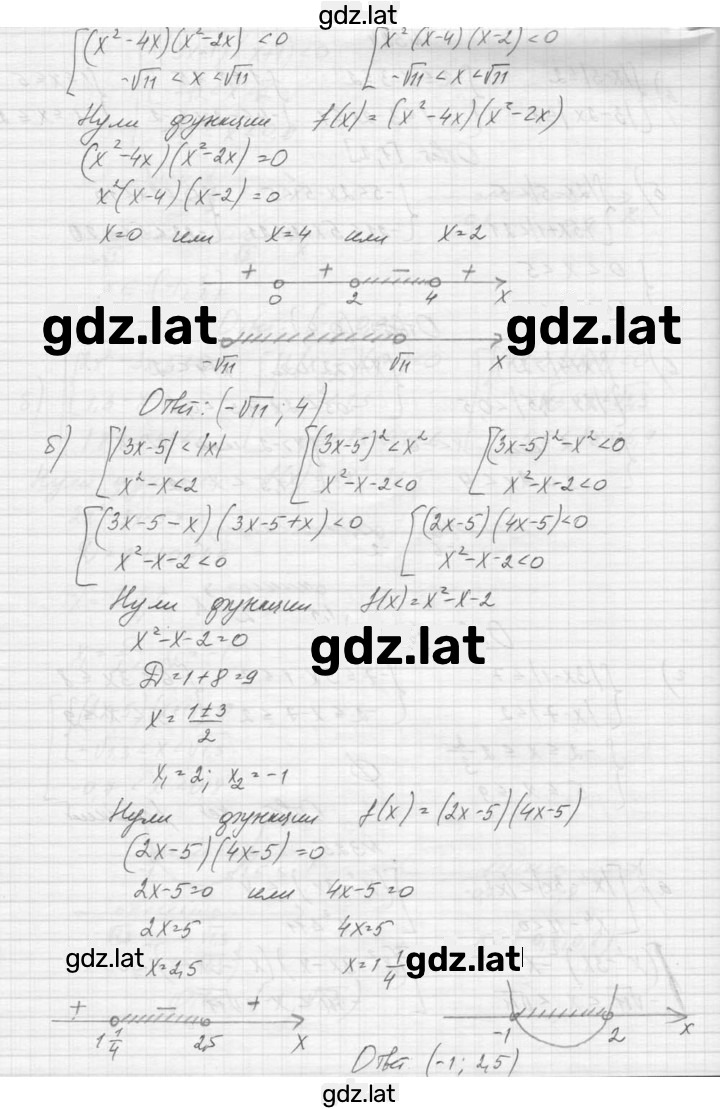 gdz.lat
[(x²-4x)(x²-2x)<0 [x²(x-4)(x-2)<0
-√11<x<√11 -√11<x<√11
Нули функции f(x)=(x²-4x)(x²-2x)
(x²-4x)(x²-2x)=0
x²(x-4)(x-2)=0
x=0 или x=4 или x=2
+ + - +
0 2 4 x
gdz.lat gdz.lat
-√11 √11 x
Ответ: (-√11; 4)
б) [|3x-5|<|x| [(3x-5)²<x² [(3x-5)²-x²<0
x²-x<2 x²-x-2<0 x²-x-2<0
[(3x-5-x)(3x-5+x)<0 [(2x-5)(4x-5)<0
x²-x-2<0 x²-x-2<0
Нули функции f(x)=x²-x-2
x²-x-2=0
gdz.lat
Д=1+8=9
x=(1±3)/2
x₁=2; x₂=-1
Нули функции f(x)=(2x-5)(4x-5)
(2x-5)(4x-5)=0
2x-5=0 или 4x-5=0
2x=5 4x=5
gdz.lat x=2,5 x=1 1/4 gdz.lat
+ - +
1 1/4 2,5 x -1 2 x
Ответ (-1; 2,5)
gdz.lat